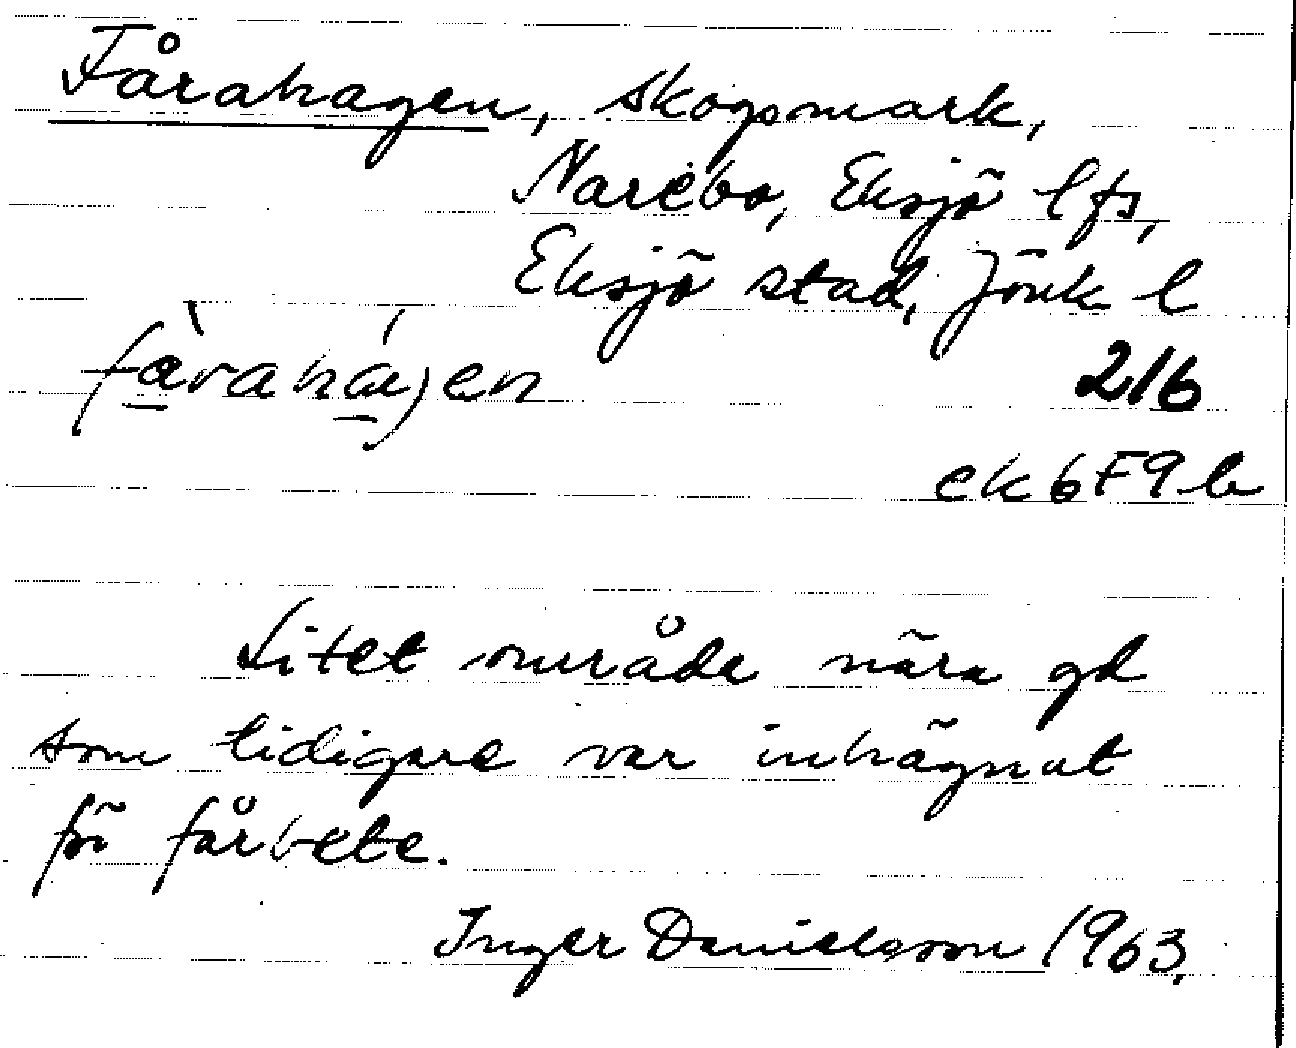 Fårahagen, skogsmark,
Narebo, Eksjö lfs,
Eksjö stad, Jönk l
216
ek 6F9b
Litet område nära gd
som tidigare var inhägnat
för fårbete.
Inger Danielsson 1963.